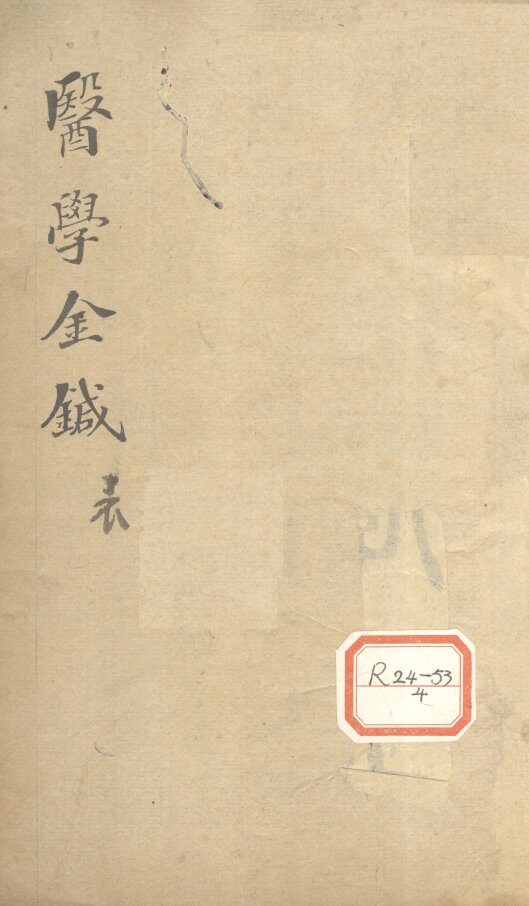 醫學金鍼
表
R24-53
4